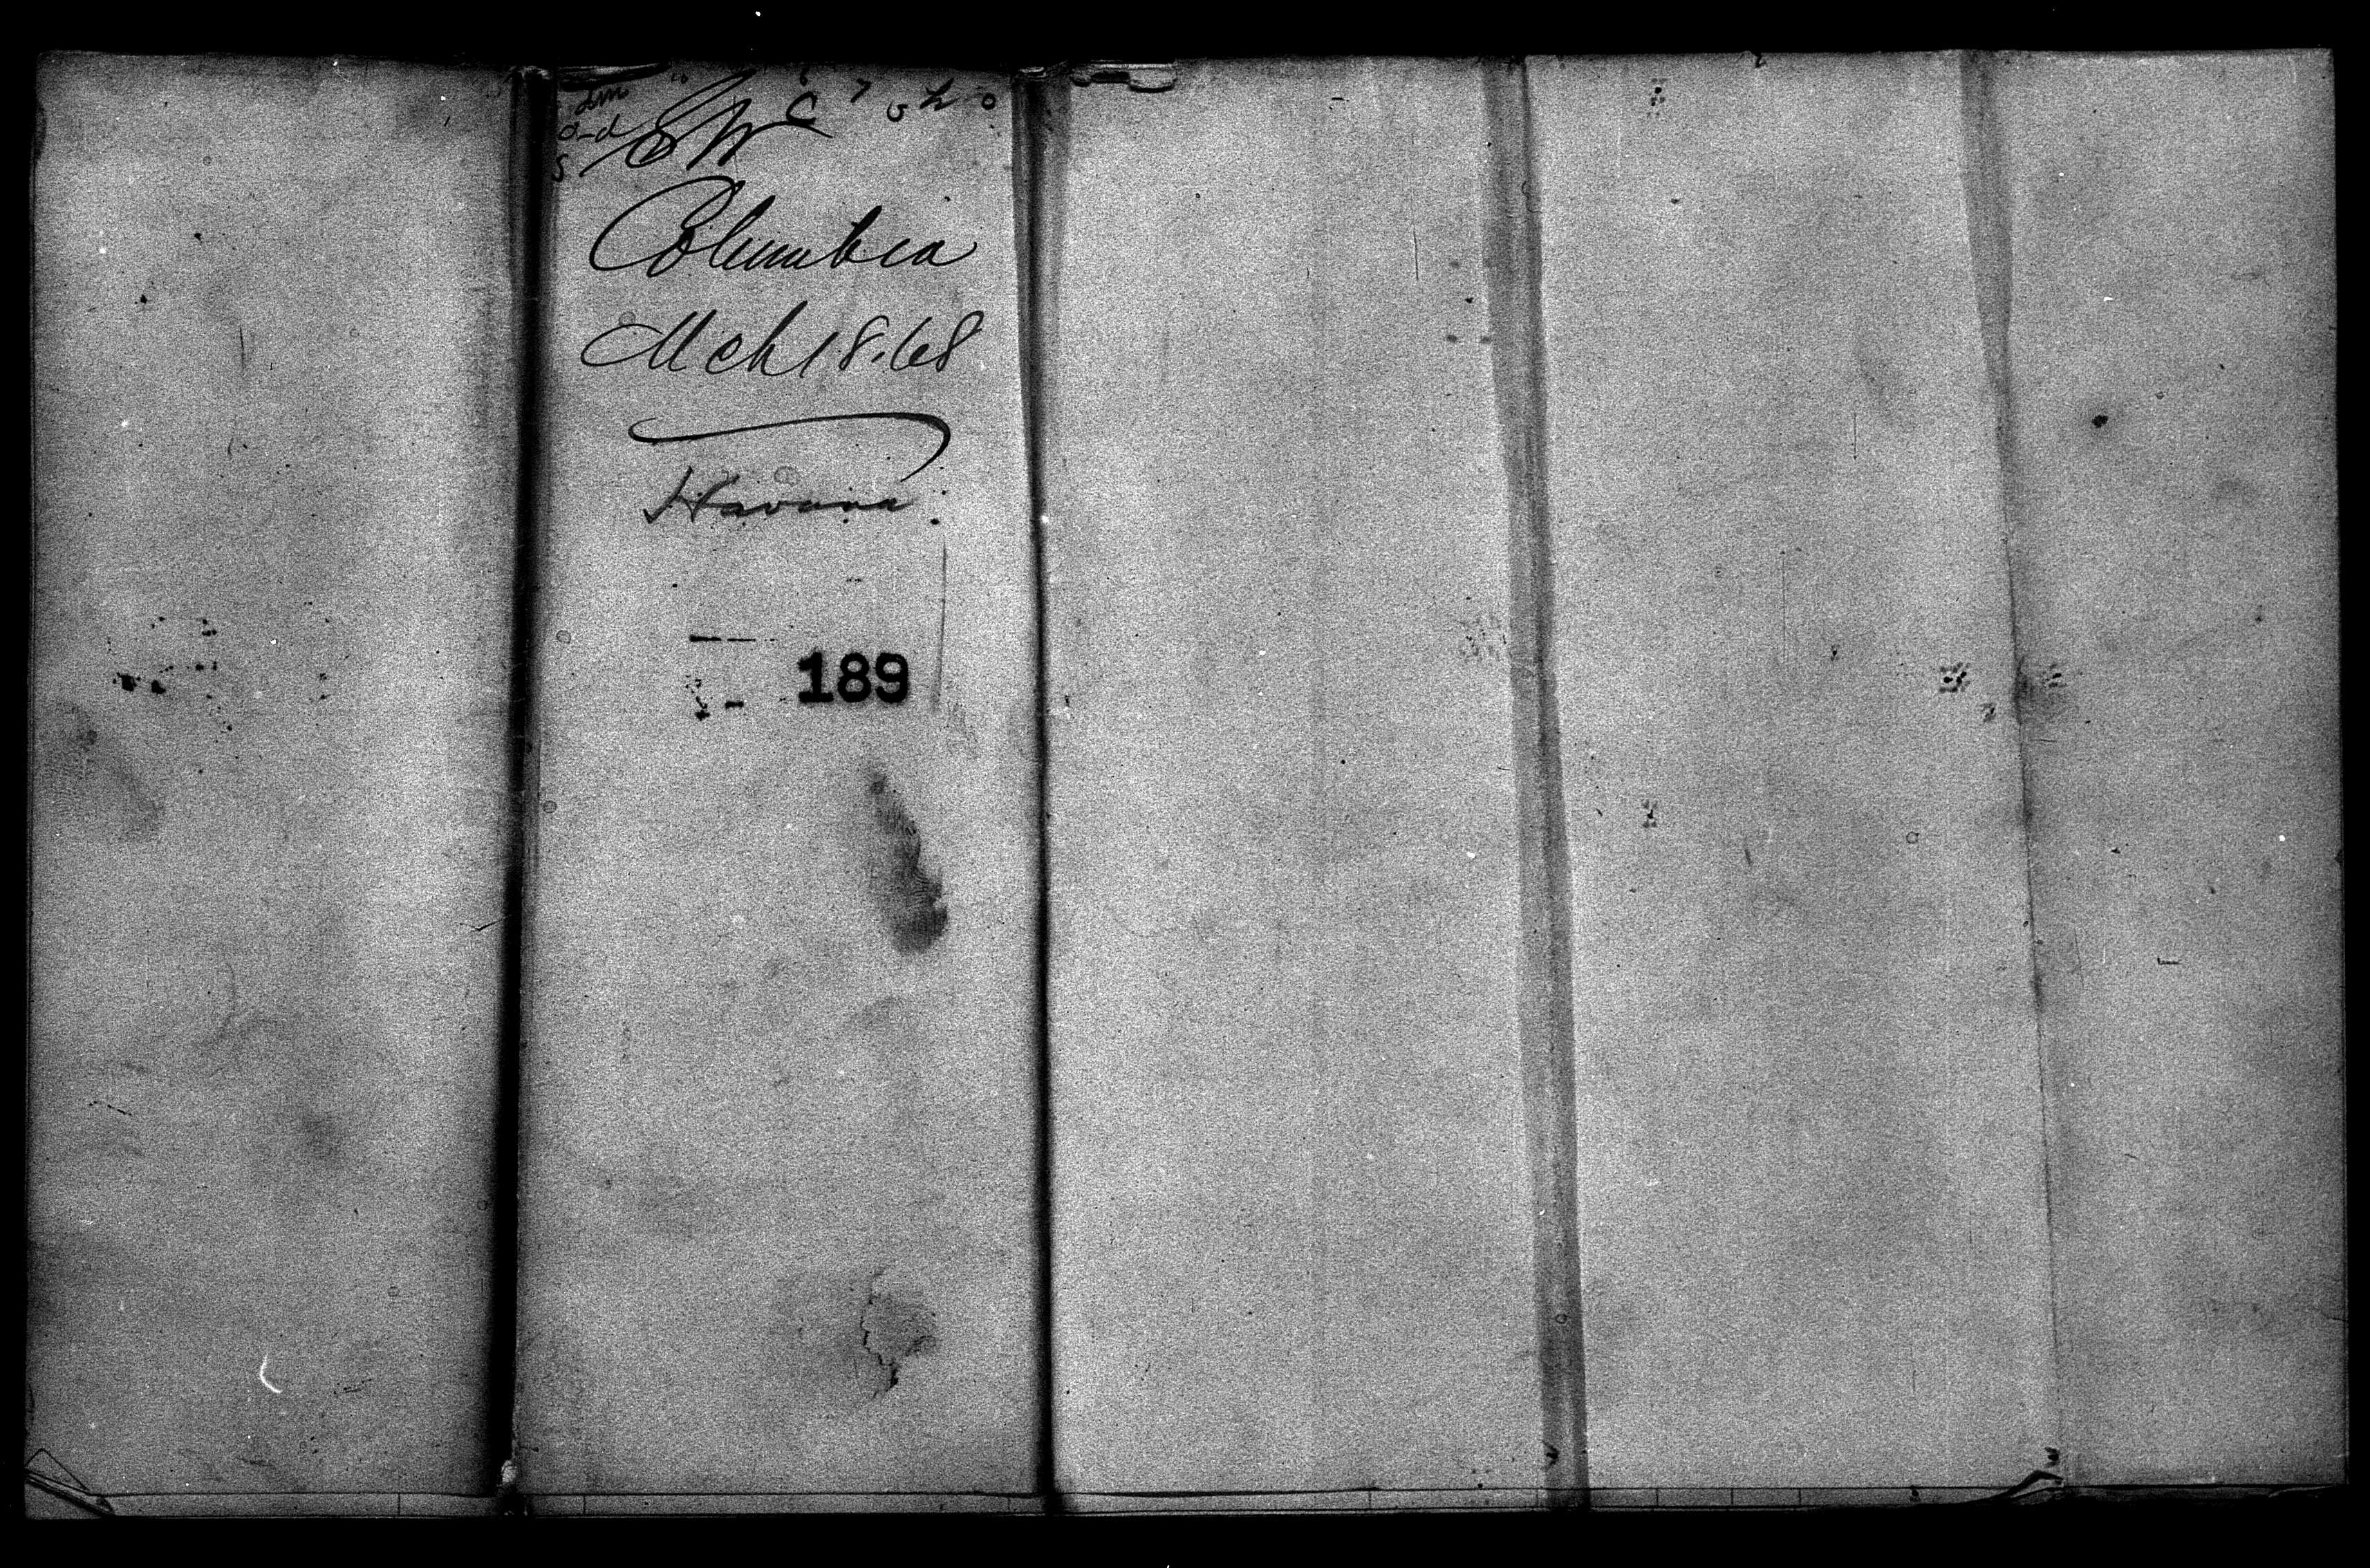 Columbia
Mch 18.68
Havana.
189